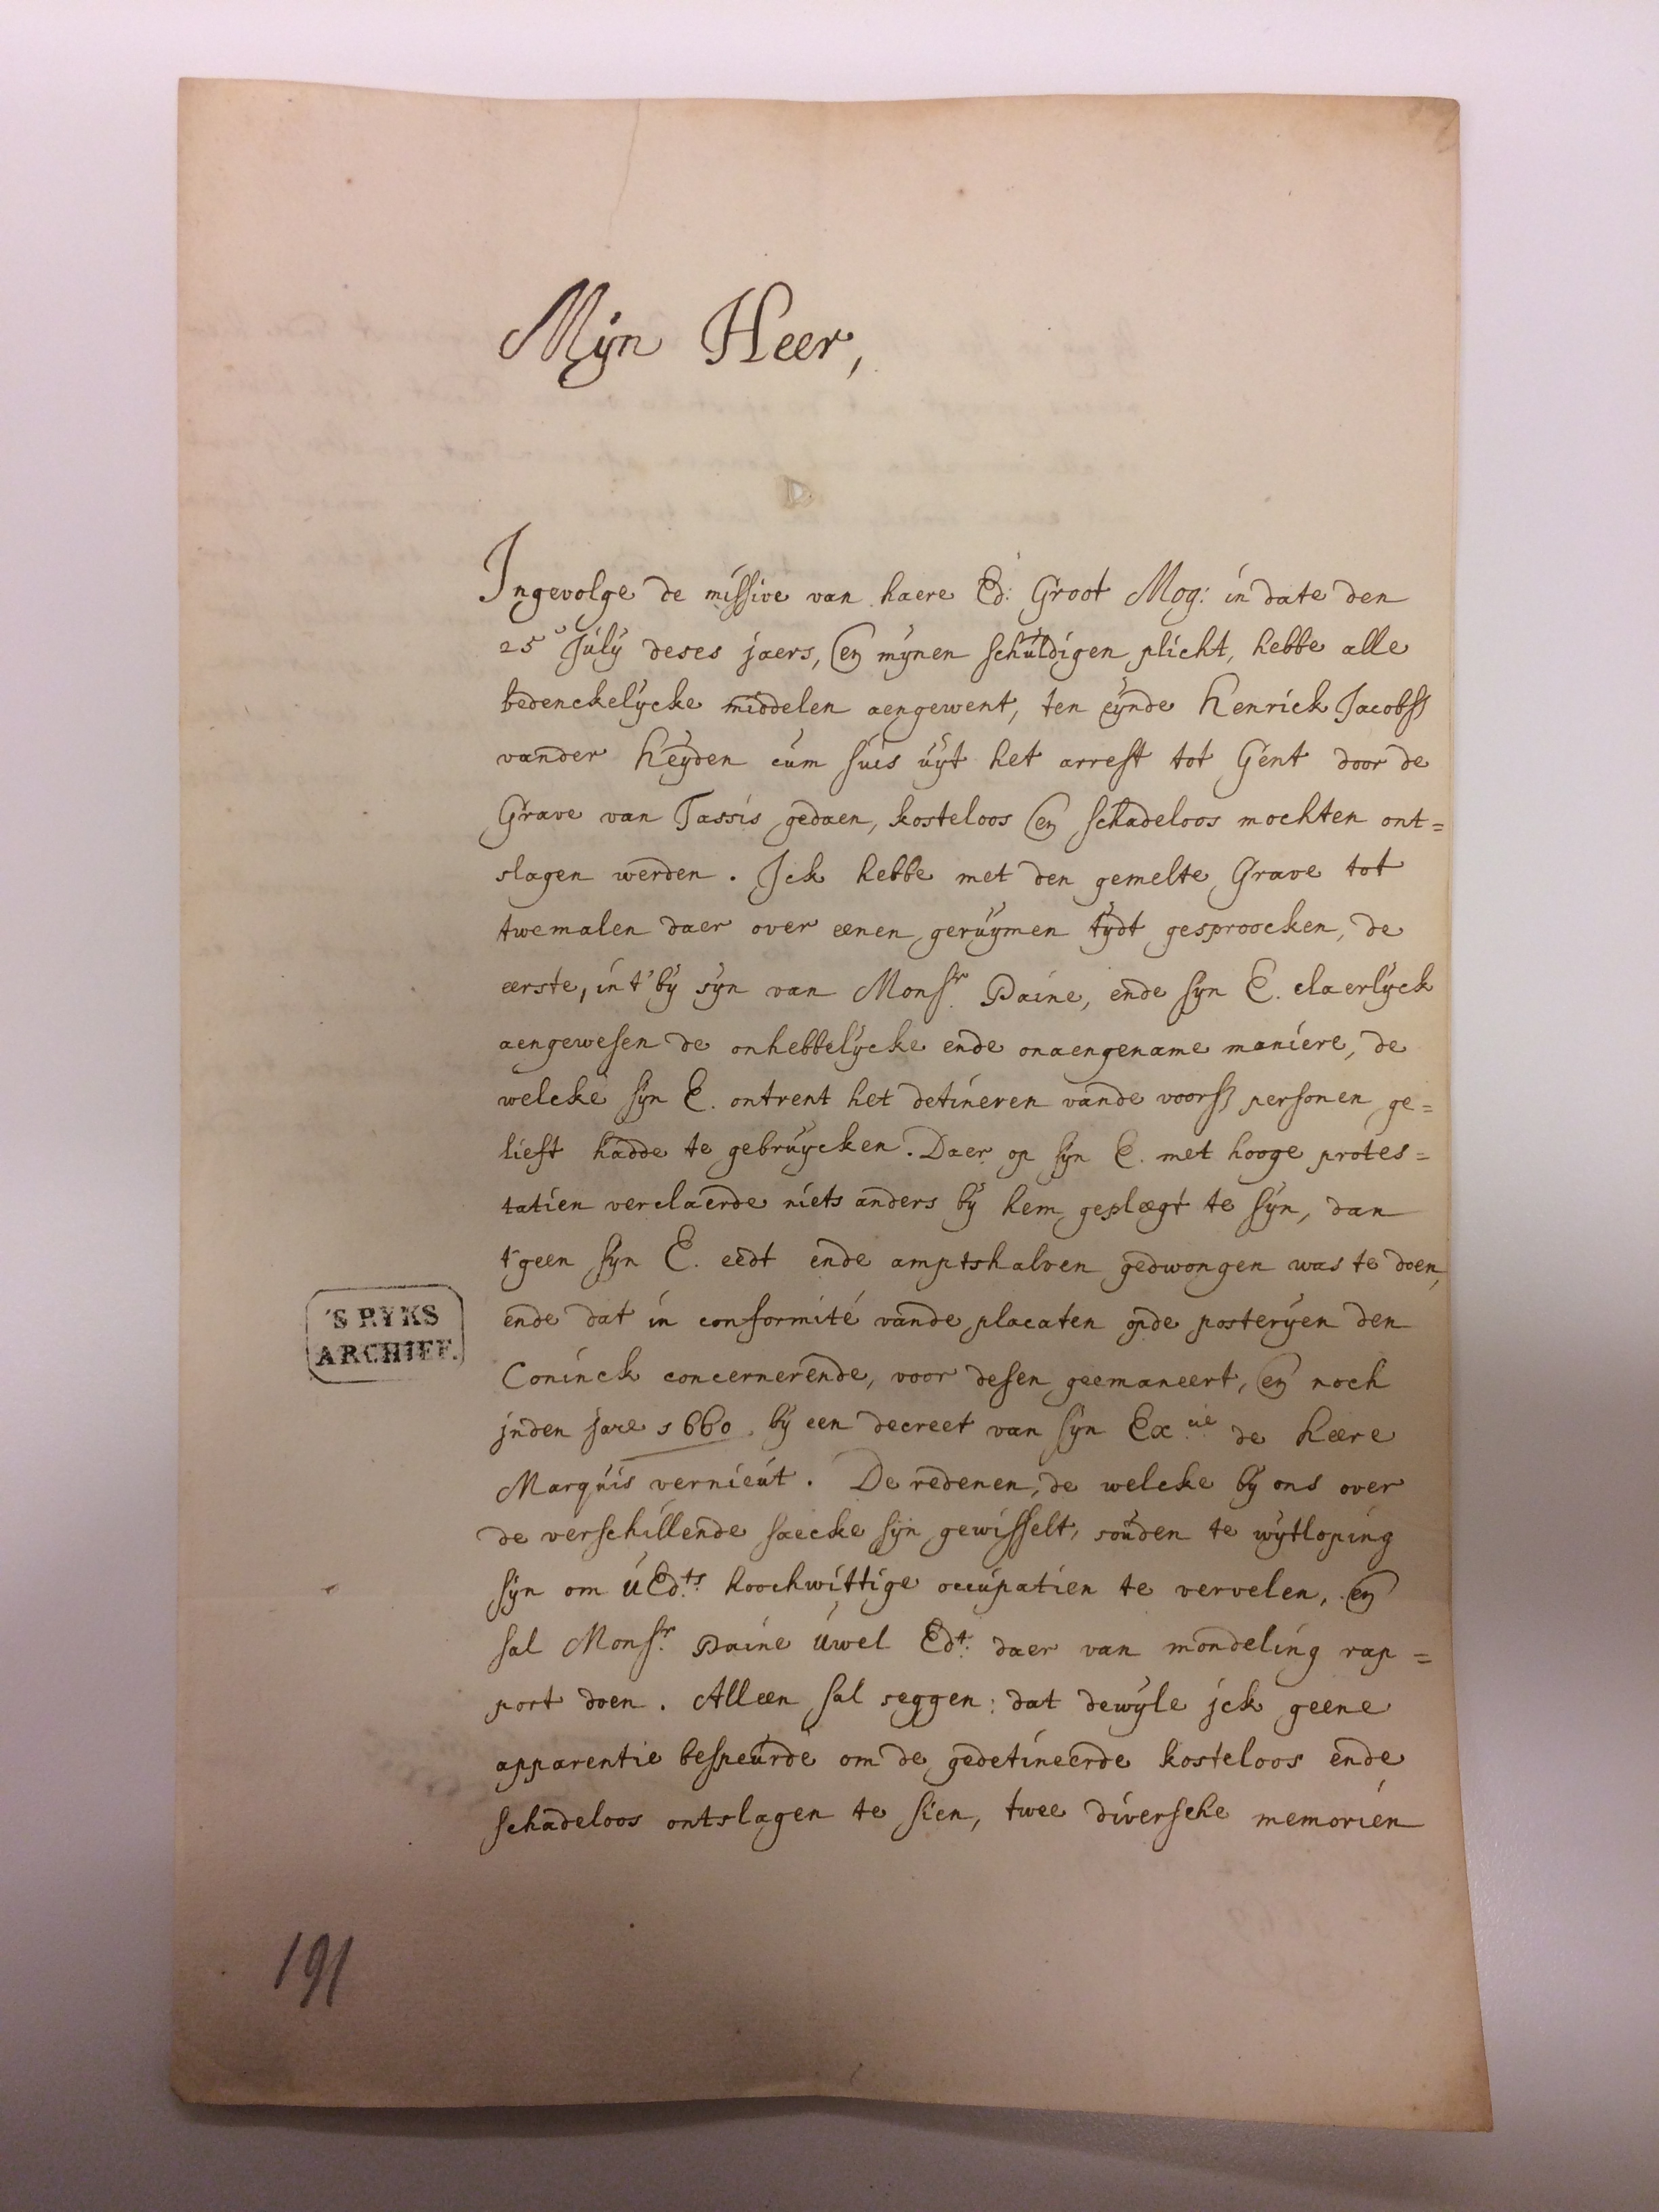 Mijn Heer,
Ingevolge de missive van haere Ed: Groot Mog: in date den
25 July deses jaers, en mynen schuldigen plicht, hebbe alle
bedenckelycke middelen aengewent, ten eynde Henrick Jacobss
vander Heyden cum suis uyt het arrest tot Gent door de
Grave van Tassis gedaen, kosteloos en schadeloos mochten ont=
slagen werden. Ick hebbe met den gemelte Grave tot
twemalen daer over eenen geruymen tydt gesproocken, de
eerste, in t' by syn van Monsr. Paine, ende syn E. claerlyck
aengewesen de onhebbelycke ende onaengename maniere, de
welcke syn E. ontrent het detineren vande voorss personen ge=
lieft hadde te gebruycken. Daer op syn E. met hooge protes=
tatien verclaerde niets anders by hem geplægt te syn, dan
t'geen syn E. eedt ende amptshalven gedwongen was te doen,
ende dat in conformité vande placaten opde posteryen den
Coninck concernerende, voor desen geemaneert, en noch
jnden jare 1660. by een decreet van syn Ex.cie de heere
Marquis vernieut. De redenen, de welcke by ons over
de verschillende saecke syn gewisselt, souden te wytloping
syn om UEd.ts hoochwittige occupatien te vervelen, en
sal Monsr. Paine Uwel Edt. daer van mondeling rap=
port doen. Alleen sal seggen: dat dewyle jck geene
apparentie bespeurde om de gedetineerde kosteloos ende
schadeloos ontslagen te sien, twee diversche memorien
'S RYKS
ARCHIEF.
191